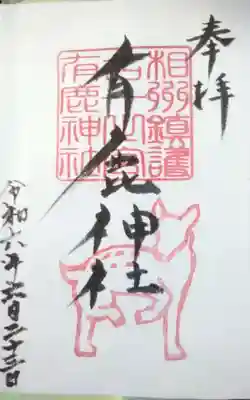 奉拝
相州鎮護
有鹿神社
有鹿神社
令和六年六月二十三日